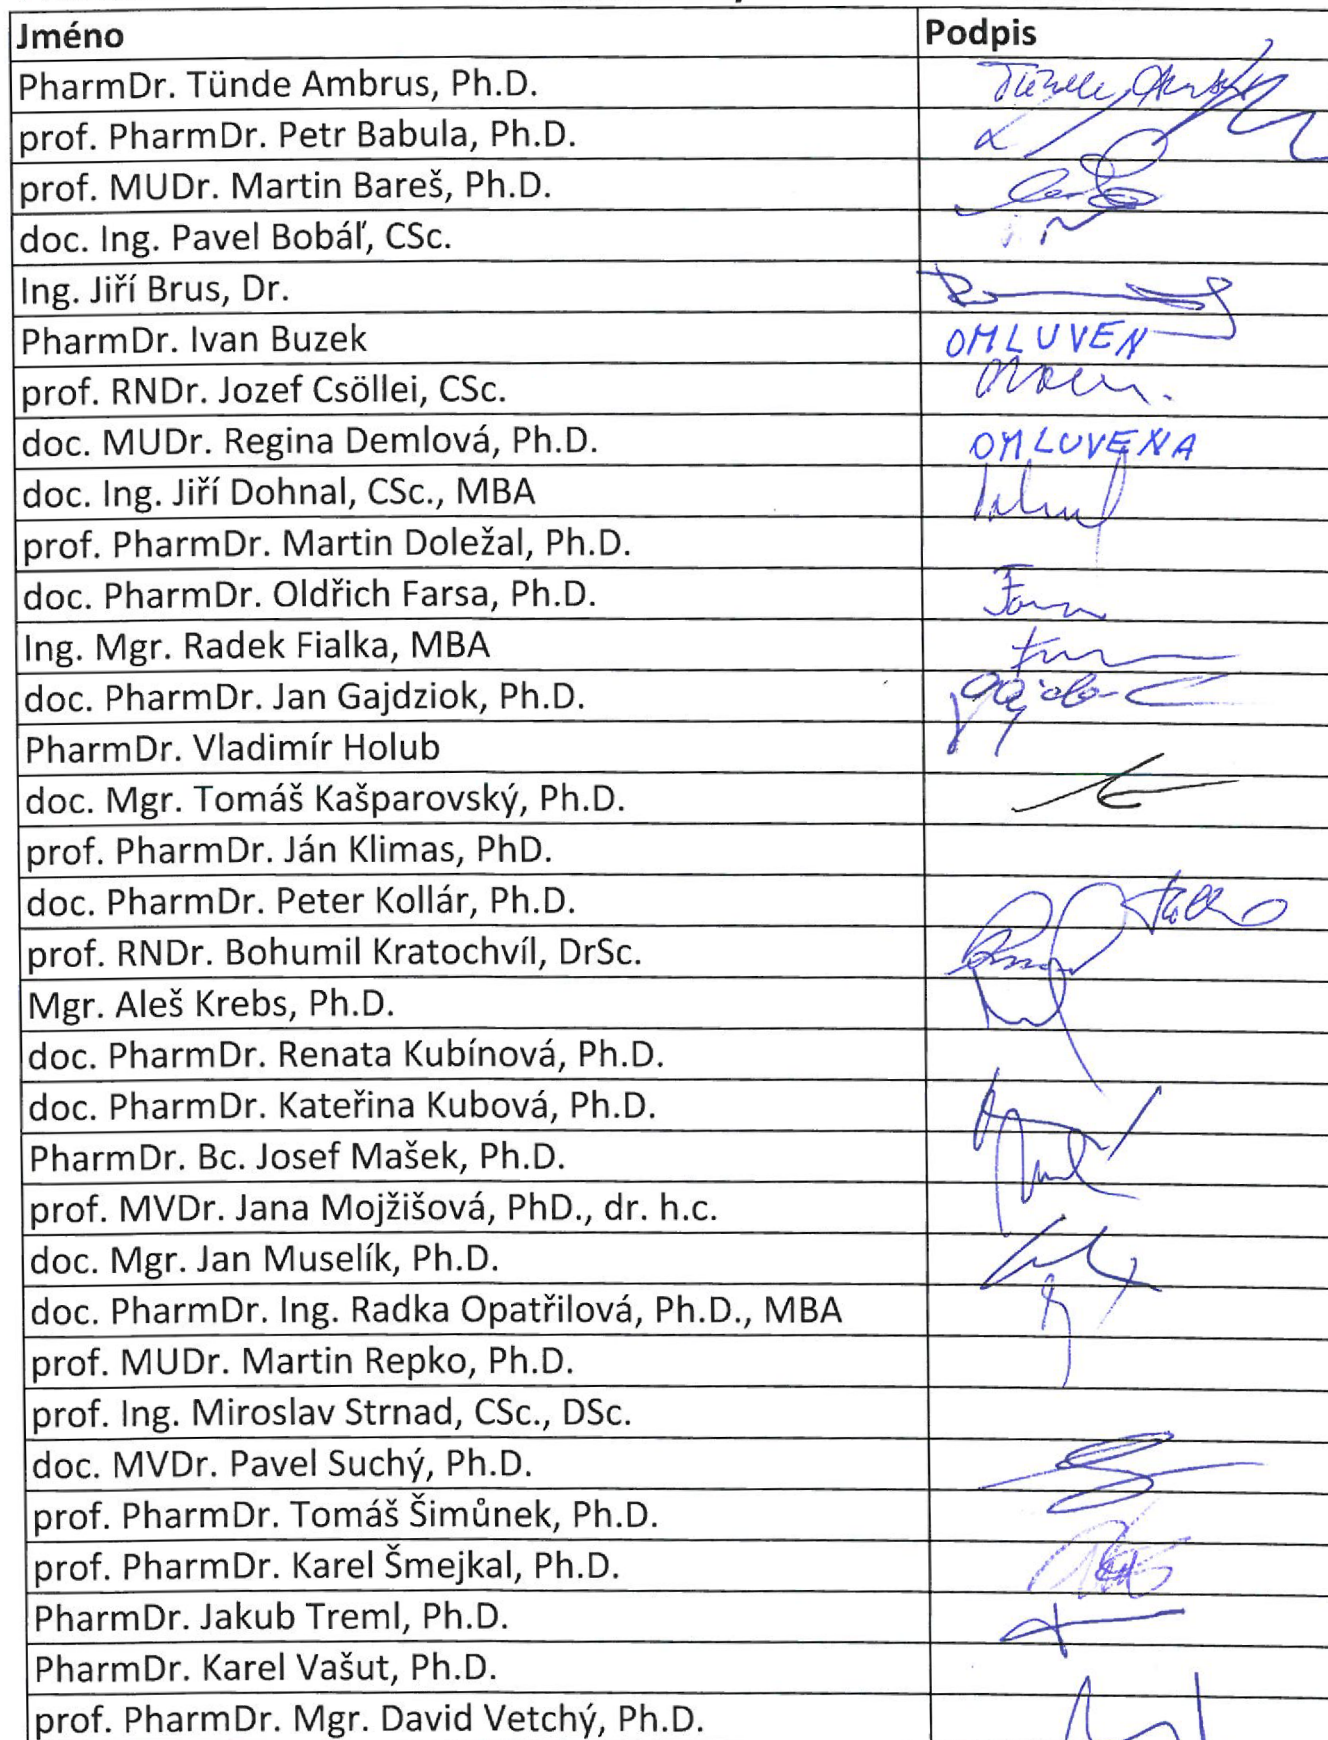 Jméno Podpis
PharmDr. Tünde Ambrus, Ph.D.
prof. PharmDr. Petr Babula, Ph.D.
prof. MUDr. Martin Bareš, Ph.D.
doc. Ing. Pavel Bobáľ, CSc.
Ing. Jiří Brus, Dr.
PharmDr. Ivan Buzek OMLUVEN
prof. RNDr. Jozef Csöllei, CSc.
doc. MUDr. Regina Demlová, Ph.D. OMLUVENA
doc. Ing. Jiří Dohnal, CSc., MBA
prof. PharmDr. Martin Doležal, Ph.D.
doc. PharmDr. Oldřich Farsa, Ph.D.
Ing. Mgr. Radek Fialka, MBA
doc. PharmDr. Jan Gajdziok, Ph.D.
PharmDr. Vladimír Holub
doc. Mgr. Tomáš Kašparovský, Ph.D.
prof. PharmDr. Ján Klimas, PhD.
doc. PharmDr. Peter Kollár, Ph.D.
prof. RNDr. Bohumil Kratochvíl, DrSc.
Mgr. Aleš Krebs, Ph.D.
doc. PharmDr. Renata Kubínová, Ph.D.
doc. PharmDr. Kateřina Kubová, Ph.D.
PharmDr. Bc. Josef Mašek, Ph.D.
prof. MVDr. Jana Mojžišová, PhD., dr. h.c.
doc. Mgr. Jan Muselík, Ph.D.
doc. PharmDr. Ing. Radka Opatřilová, Ph.D., MBA
prof. MUDr. Martin Repko, Ph.D.
prof. Ing. Miroslav Strnad, CSc., DSc.
doc. MVDr. Pavel Suchý, Ph.D.
prof. PharmDr. Tomáš Šimůnek, Ph.D.
prof. PharmDr. Karel Šmejkal, Ph.D.
PharmDr. Jakub Treml, Ph.D.
PharmDr. Karel Vašut, Ph.D.
prof. PharmDr. Mgr. David Vetchý, Ph.D.